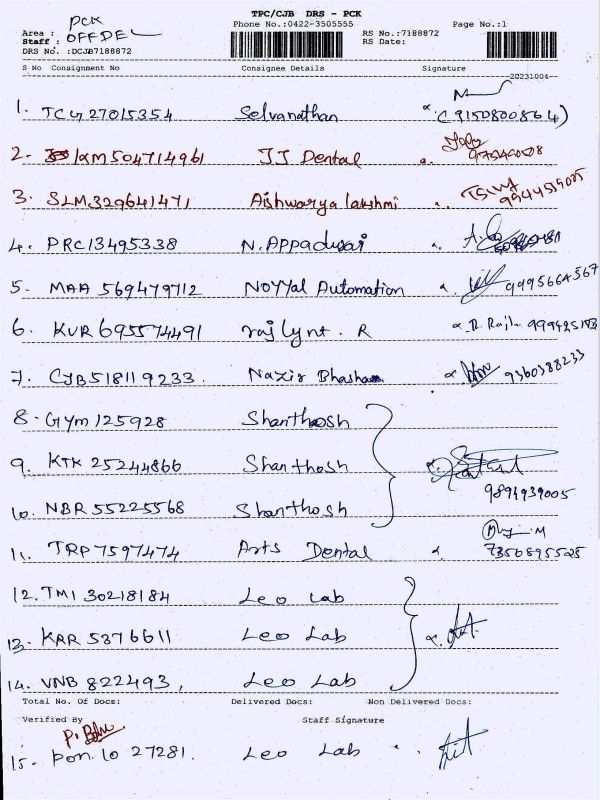 TPC/CJB DRS - PCK
Phone No.:0422-3505555 Page No.:1
Area : PCK
Staff : OFFDEL
RS No.:7188872
RS Date:
DRS No. :DCJB7188872
S No Consignment No Consignee Details Signature
20231004
1. TCY27015354 Selvanathan (9150800864)
2. KM504714961 JJ Dental
3. SLM329641471 Aishwarya lakshmi 9944519005
4. PRC13495338 N. Appadurai
5. MAA 569479712 Noyyal Automation 9995664567
6. KUR 695574491 R
7. CJB518119233. Nazir Bhasha 9360388233
8. GYM125928 Shanthosh
9. KTK 25244866 Shanthosh
9894939005
10. NBR 55225568 Shanthosh
11. TRP 7597474 Arts Dental 7350895525
12. TMI 30218184 Leo Lab
13. KAR 5376611 Leo Lab
14. VNB 822493, Leo Lab
Total No. Of Docs: Delivered Docs: Non Delivered Docs:
Verified By Staff Signature
15. Pon. lo 27281. Leo Lab